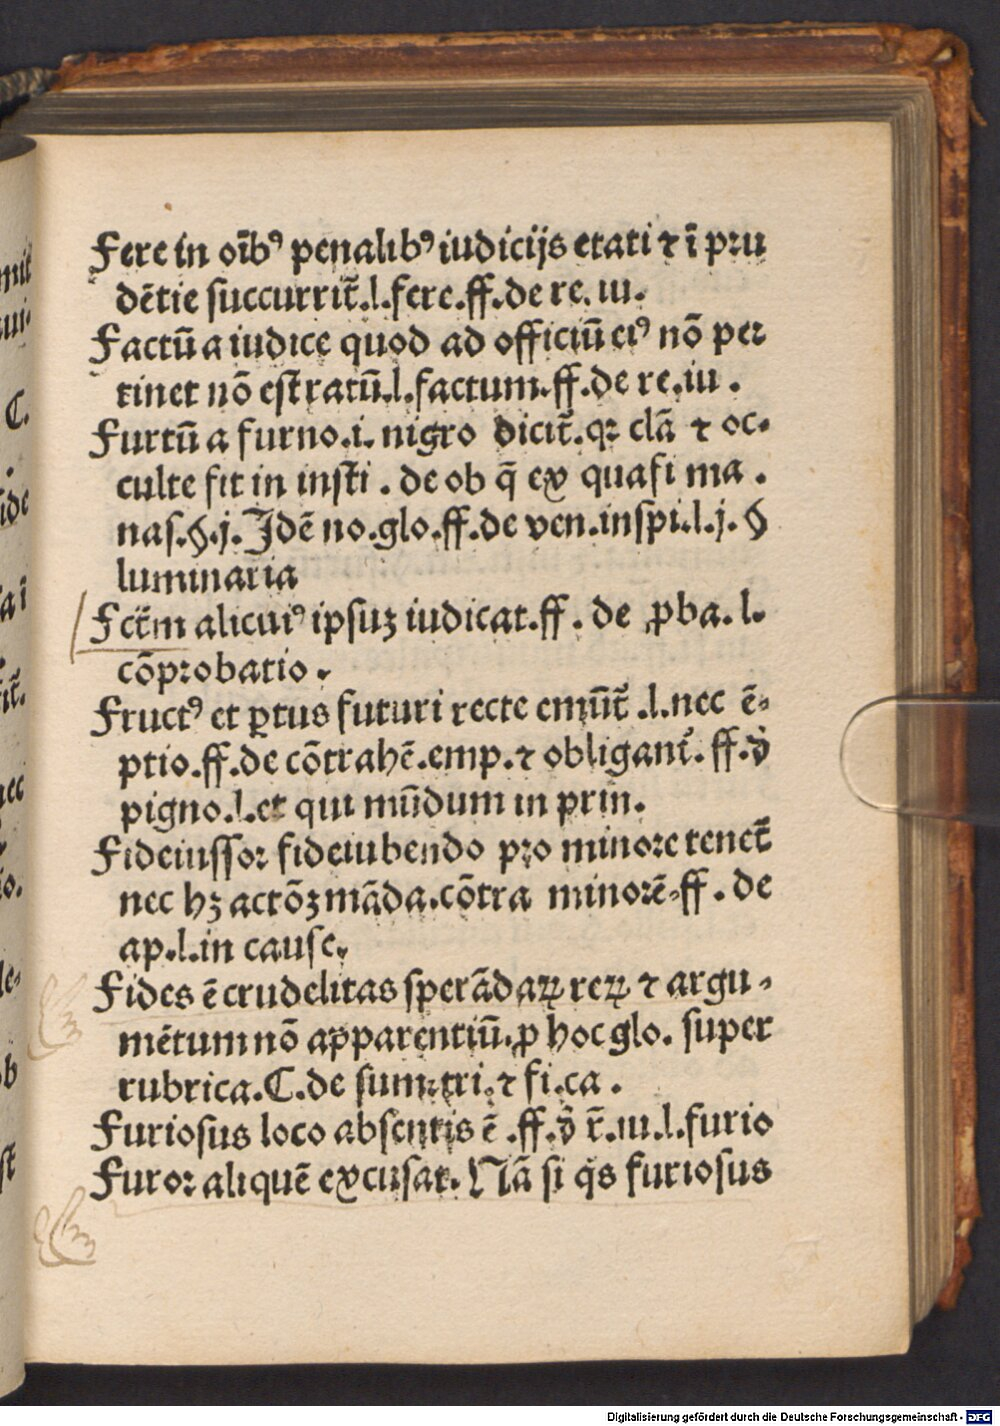 Fere in oīb⁹ penalib⁹ iudicijs etati ⁊ ī pꝛu
dētie succurrit̄.l.fere.ff.de re. iu.
Factū a iudice quod ad officiū ei⁹ nō per
tinet nō est̄ ratū.l.factum.ff.de re.iu.
Furtū a furno.i. nigro dicit̄.qꝛ clā ⁊ oc-
culte fit in instī . de ob q̄ ex quasi ma .
nas.§.j. Idē no.glo.ff.de ven.inspi.l.j. §
luminaria
Fct̄m alicui⁹ ipsuꝫ iudicat.ff. de ꝓba. l.
cōpꝛobatio.
Fruct⁹ et ꝑtus futuri recte emūt̄ .l.nec ē-
ptio.ff.de cōtrahē.emp.⁊ obligant̄. ff.ꝺ̄
pigno.l.et qui mūdum in prin.
Fideiussoꝛ fideiubendo pro minoꝛe tenet̄
nec hꝫ actōꝫ māda.cōtra minoꝛē.ff. de
ap.l.in cause.
Fides ē crudelitas sperādaꝝ reꝝ ⁊ argu-
mētum nō apparentiū.ꝓ hoc glo. super
rubrica.C.de sum.tri.⁊ fi.ca.
Furiosus loco absentis ē .ff.ꝺ̄ r̄.iu.l.furio
Furoꝛ aliquē excusat. Nā si q̇s furiosus
Digitalisierung gefördert durch die Deutsche Forschungsgemeinschaft - DFG